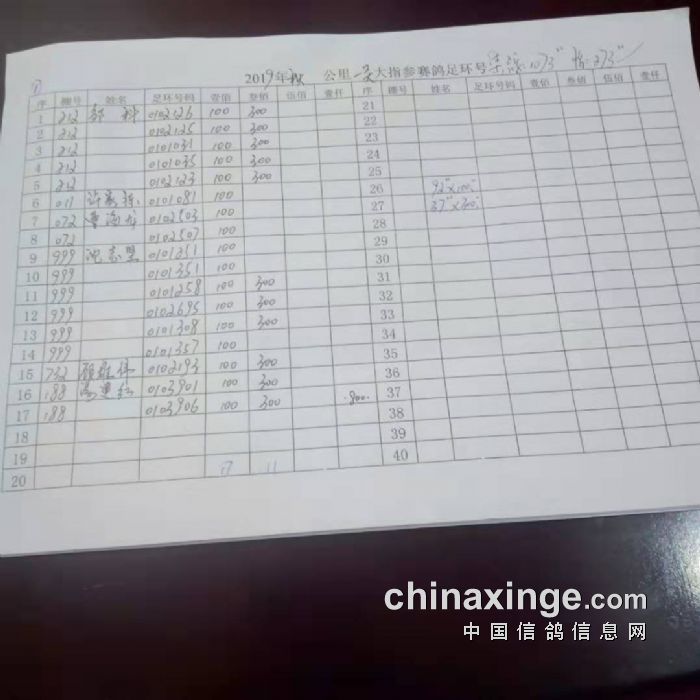 2019年秋 公里 大指参赛鸽足环号
序 棚号 姓名 足环号码 壹佰 叁佰 伍佰 壹仟 序 棚号 姓名 足环号码 壹佰 叁佰 伍佰 壹仟
1 212 0102126 100 300 21
2 212 0102125 100 300 22
3 212 0101031 100 300 23
4 212 0101035 100 300 24
5 212 0102123 100 300 25
6 011 0101081 100 26
7 072 0102503 100 27
8 072 0102507 100 28
9 999 100 29
10 999 0101351 100 30
11 999 0101258 100 300 31
12 999 0102695 100 300 32
13 999 0101308 100 300 33
14 999 0101357 100 34
15 732 0102193 100 300 35
16 188 0103901 100 300 36
17 188 0103906 100 300 800 37
18 38
19 39
20 17 11 40
chinaxinge.com
中国信鸽信息网